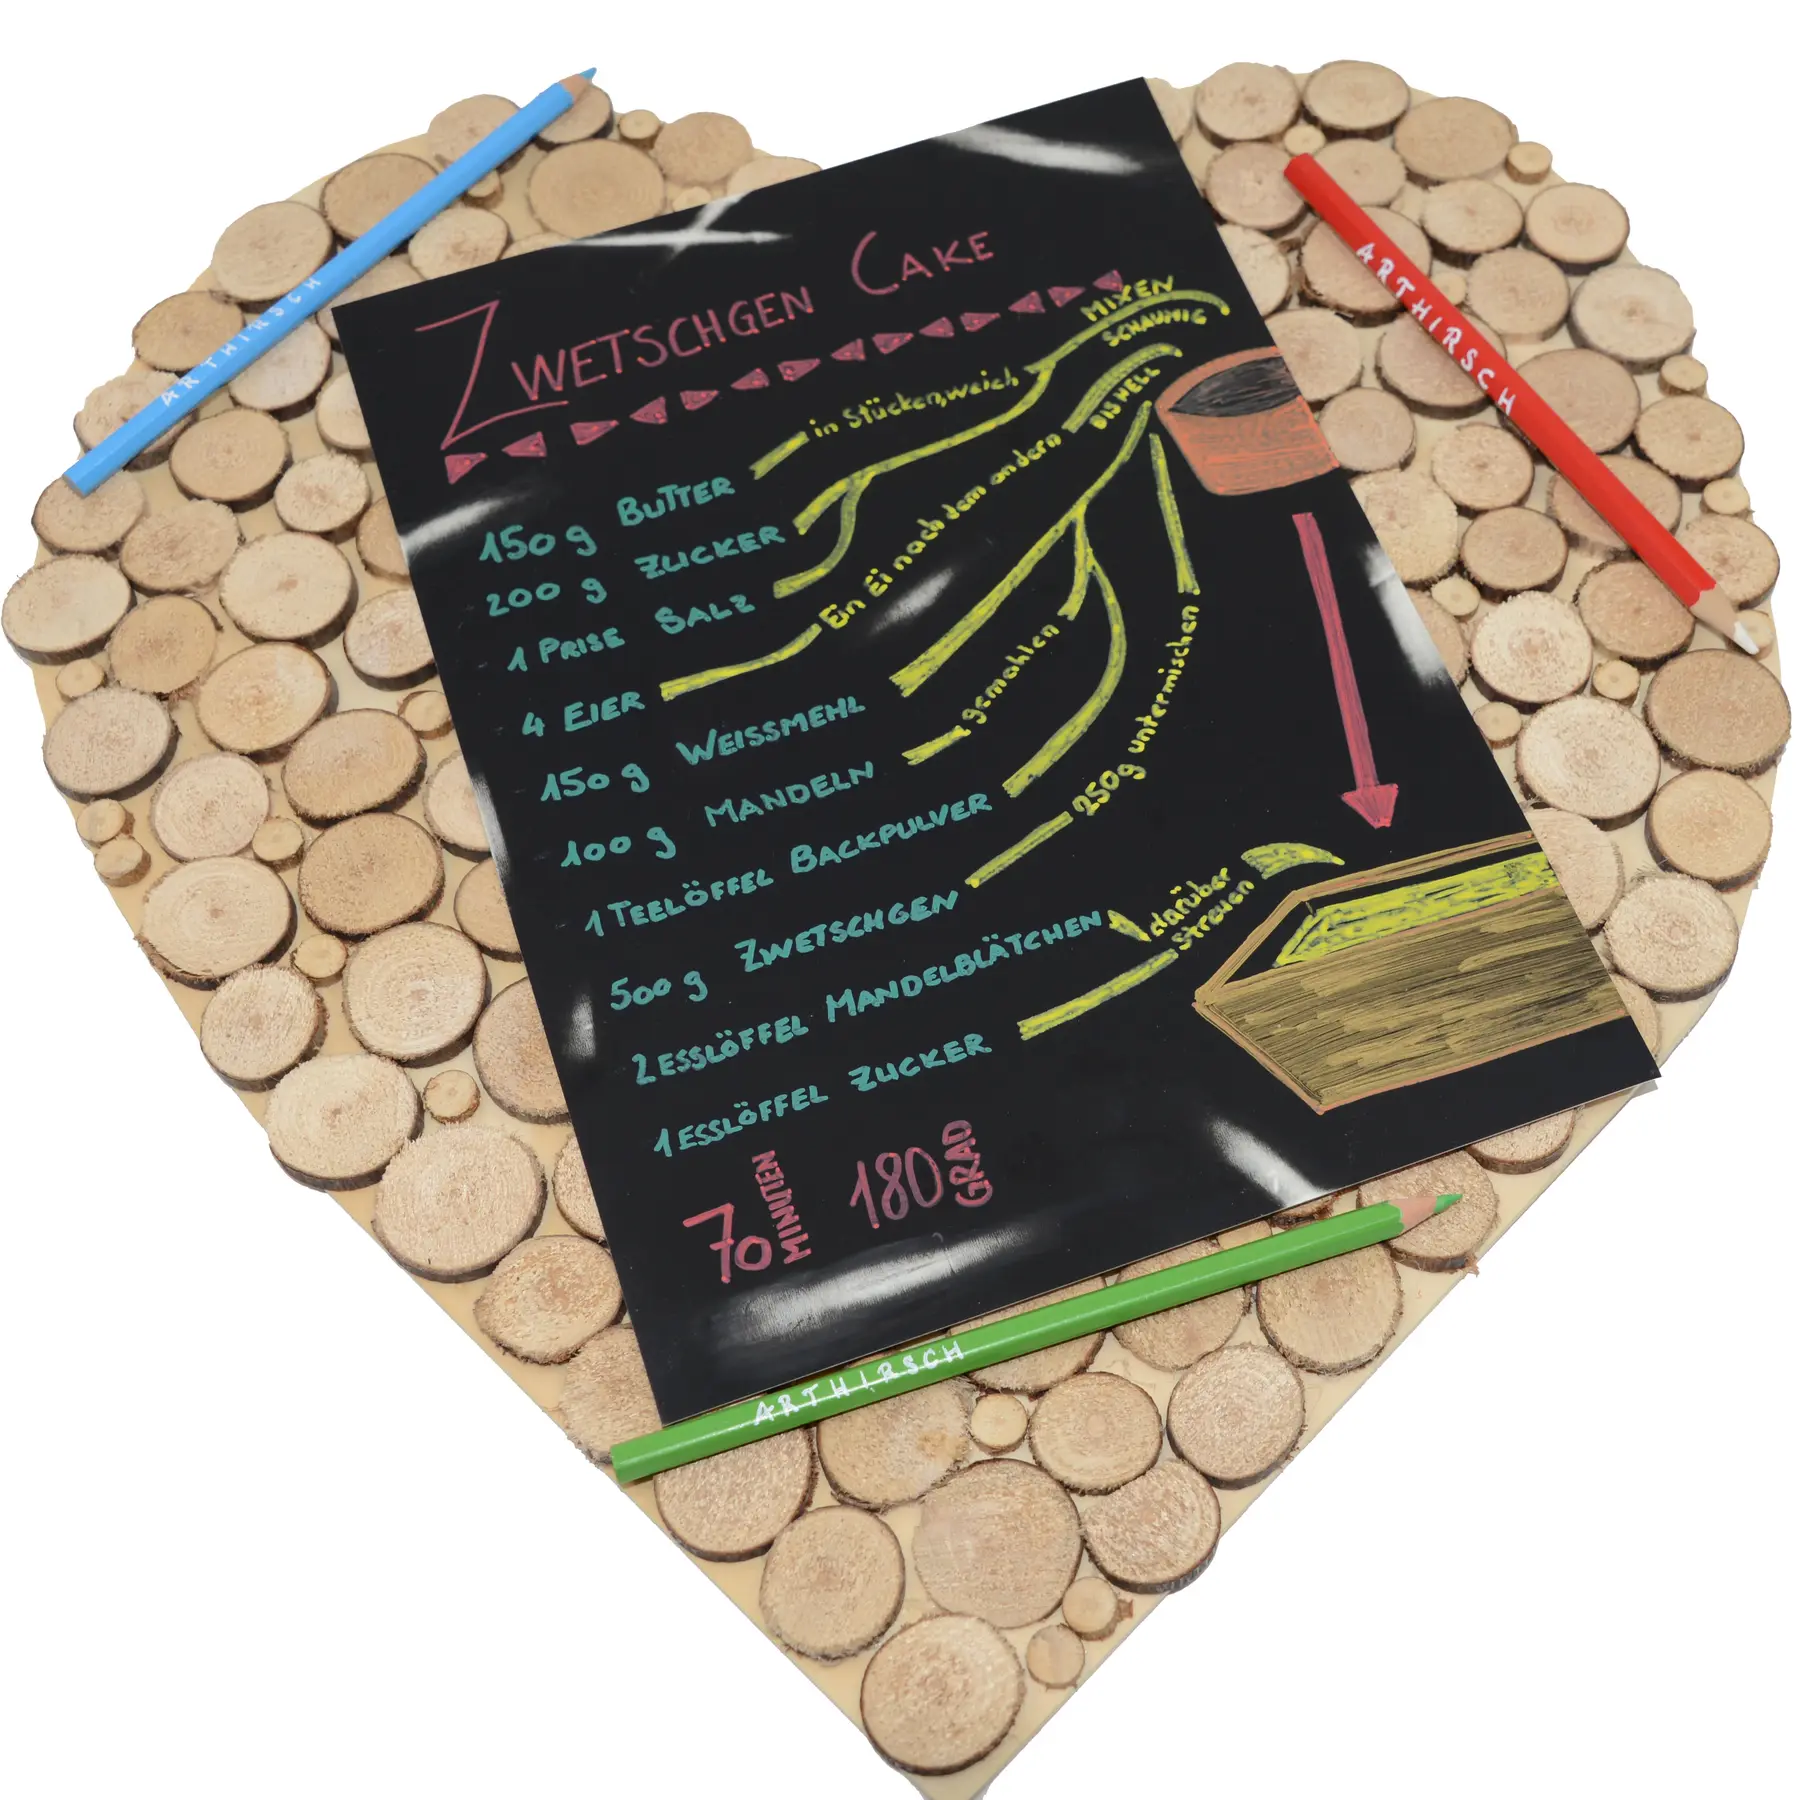 ARTHIRSCH
ARTHIRSCH
ZWETSCHGEN CAKE
MIXEN
SCHAUMIG
150 g BUTTER in Stücken, weich
200 g ZUCKER
1 PRISE SALZ
4 EIER Ein Ei nach dem andern BIS HELL
150 g WEISSMEHL
100 g MANDELN gemahlen
1 TEELÖFFEL BACKPULVER
500 g ZWETSCHGEN 250g untermischen
2 ESSLÖFFEL MANDELBLÄTCHEN darüber
1 ESSLÖFFEL ZUCKER streuen
70 MINUTEN 180 GRAD
ARTHIRSCH